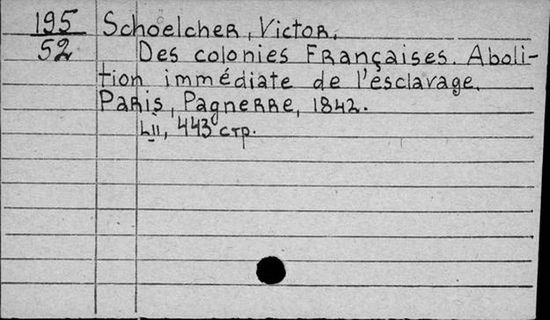 195 Schoelcher, Victor.
52 Des colonies Françaises. Aboli-
tion immédiate de l'esclavage.
Paris, Pagnerre, 1842.
LII, 443 стр.